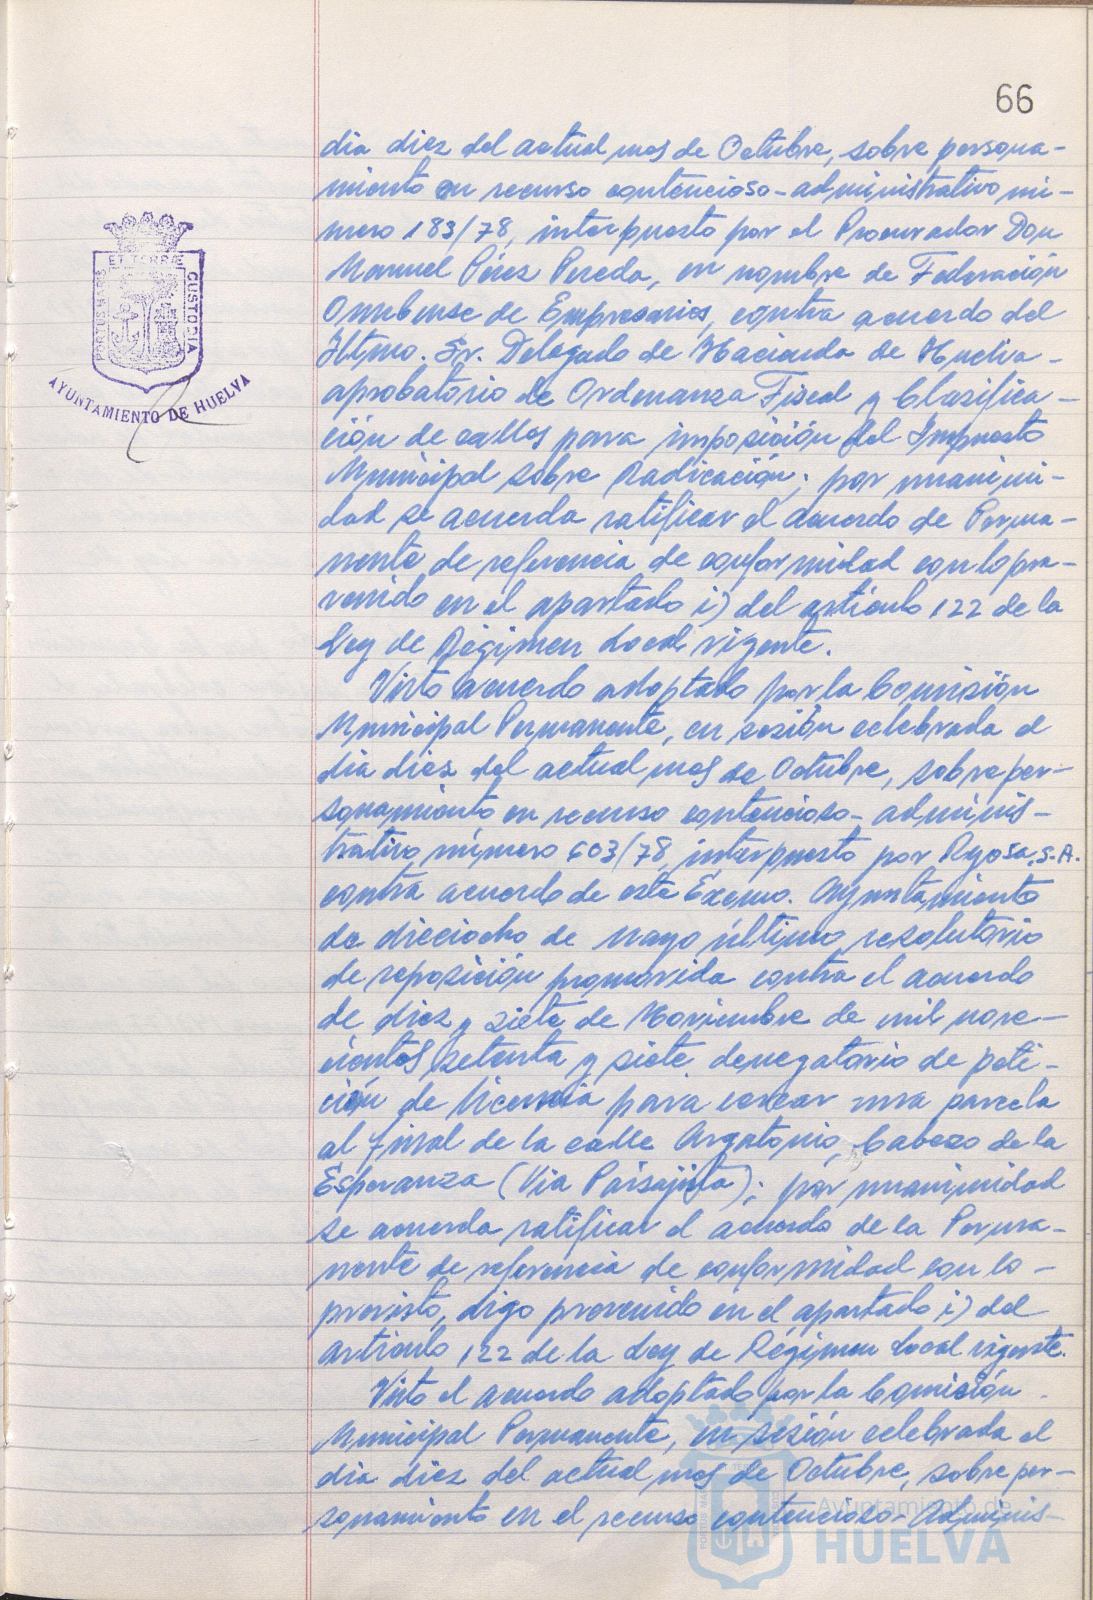 66
dia diez del actual mes de Octubre, sobre persona-
miento en recurso contencioso-administrativo nú-
mero 183/78, interpuesto por el Procurador Don
Manuel Pérez Pereda, en nombre de Federación
Onubense de Empresarios, contra acuerdo del
Iltmo. Sr. Delegado de Hacienda de Huelva -
aprobatorio de Ordenanza Fiscal y Clasifica-
ción de calles para imposición del Impuesto
Municipal sobre Radicación; por unanimi-
dad se acuerda ratificar el acuerdo de Perma-
nente de referencia de conformidad con lo pre-
venido en el apartado i) del artículo 122 de la
Ley de Régimen Local vigente.
Visto acuerdo adoptado por la Comisión
Municipal Permanente, en sesión celebrada el
dia diez del actual mes de Octubre, sobre per-
sonamiento en recurso contencioso-adminis-
trativo número 603/78, interpuesto por Ryosa, S.A.
contra acuerdo de este Excmo. Ayuntamiento
de dieciocho de mayo último, resolutorio
de reposición promovida contra el acuerdo
de diez y siete de Noviembre de mil nove-
cientos setenta y siete, denegatorio de peti-
ción de licencia para cercar una parcela
al final de la calle Argantonio, Cabezo de la
Esperanza (Via Paisajista); por unanimidad
se acuerda ratificar el acuerdo de la Perma-
nente de referencia de conformidad con lo -
previsto, digo prevenido en el apartado i) del
artículo 122 de la Ley de Régimen Local vigente.
Visto el acuerdo adoptado por la Comisión
Municipal Permanente, en sesión celebrada el
dia diez del actual mes de Octubre, sobre per-
sonamiento en el recurso contencioso-Adminis-
PORTUS MARIS ET TERRAE CUSTODIA
AYUNTAMIENTO DE HUELVA
Ayuntamiento de
HUELVA